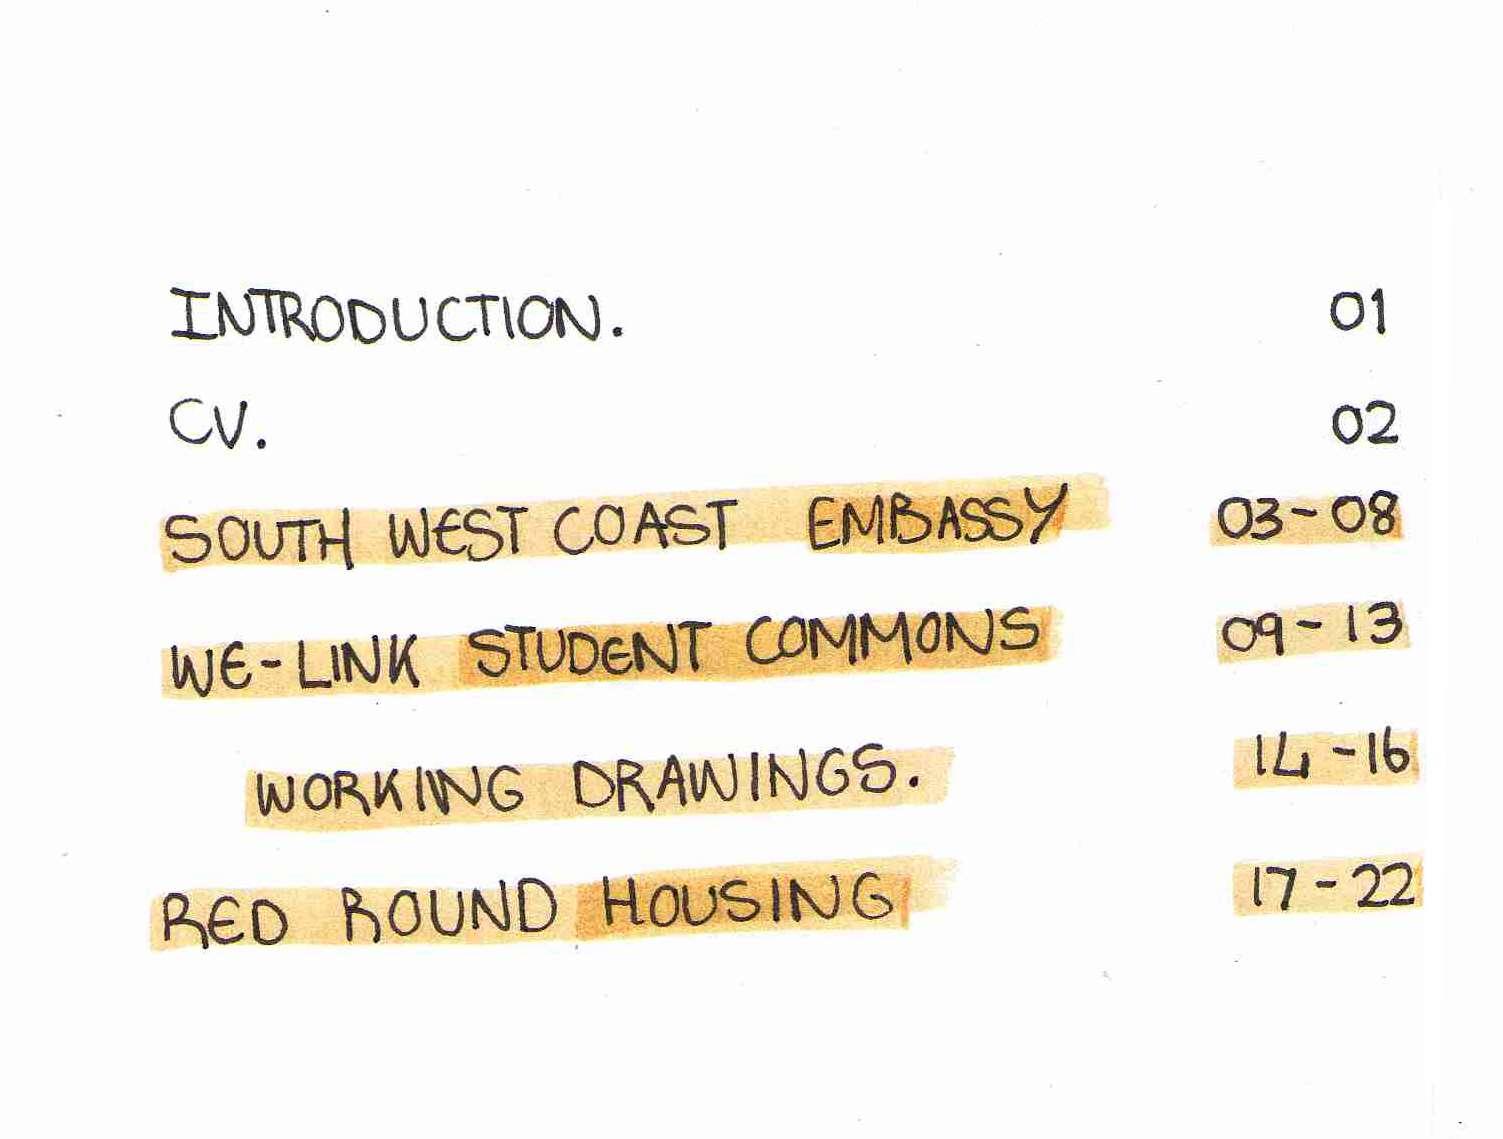 INTRODUCTION. 01
CV. 02
SOUTH WEST COAST EMBASSY 03-08
WE-LINK STUDENT COMMONS 09-13
WORKING DRAWINGS. 14-16
RED ROUND HOUSING 17-22